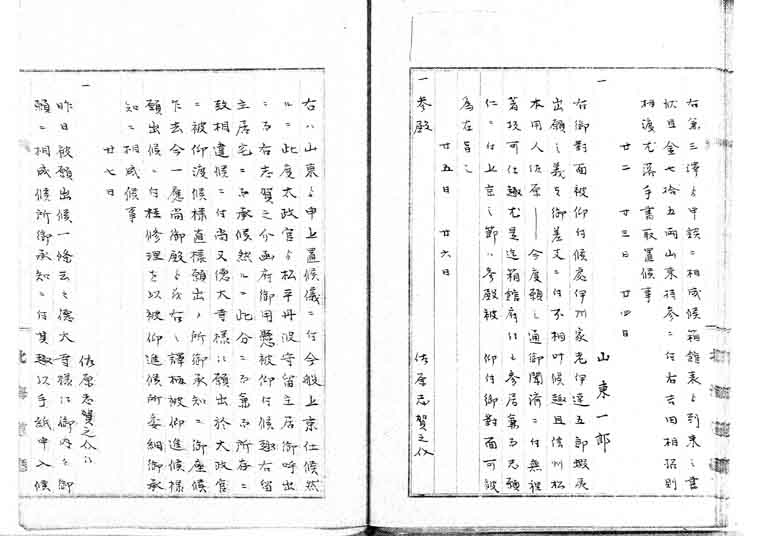 右兼三澤ゟ申談ニ相成候箱館表ゟ到来之書
状且金七拾五両山東持参ニ付右吉田相招則
相渡尤落手書取置候事
廿二日 廿三日 廿四日
一 山東一郎
右御対面被仰付候処伊州家老伊達五郎蝦夷
出願之義を御差支ニ付不相叶候趣且信州松
本用人佐原――今度願之通御聞済ニ付無程
着坂可仕趣尤是迄箱館府江も参居兼而志願
仁ニ付上京之節ハ参殿被 仰付御対面可被
為在旨也
廿五日 廿六日
一参殿 佐原志賀之介
右ハ山東ゟ申上置候儀ニ付今般上京仕候然
ルニ此度太政官ゟ松平丹波守留主居御呼出
ニ而右志賀之介函府御用懸被仰付候趣右留
主居宅ニ而承候然ルニ此分ニ而兼而所存ニ
致相違候ニ付尚又徳大寺様江願出於太政官
ニ被仰渡候様直様願出ノ所御承知ニ御座候
乍去今一応尚御殿ゟも右之譯柄被仰進候様
願出候ニ付桂修理を以被仰進候所委細御承
知ニ相成候事
廿七日
一 佐原志賀之介江
昨日被願出候一條云々徳大寺様江御内々御
頼ニ相成候所御承知ニ付其趣以手紙申入候